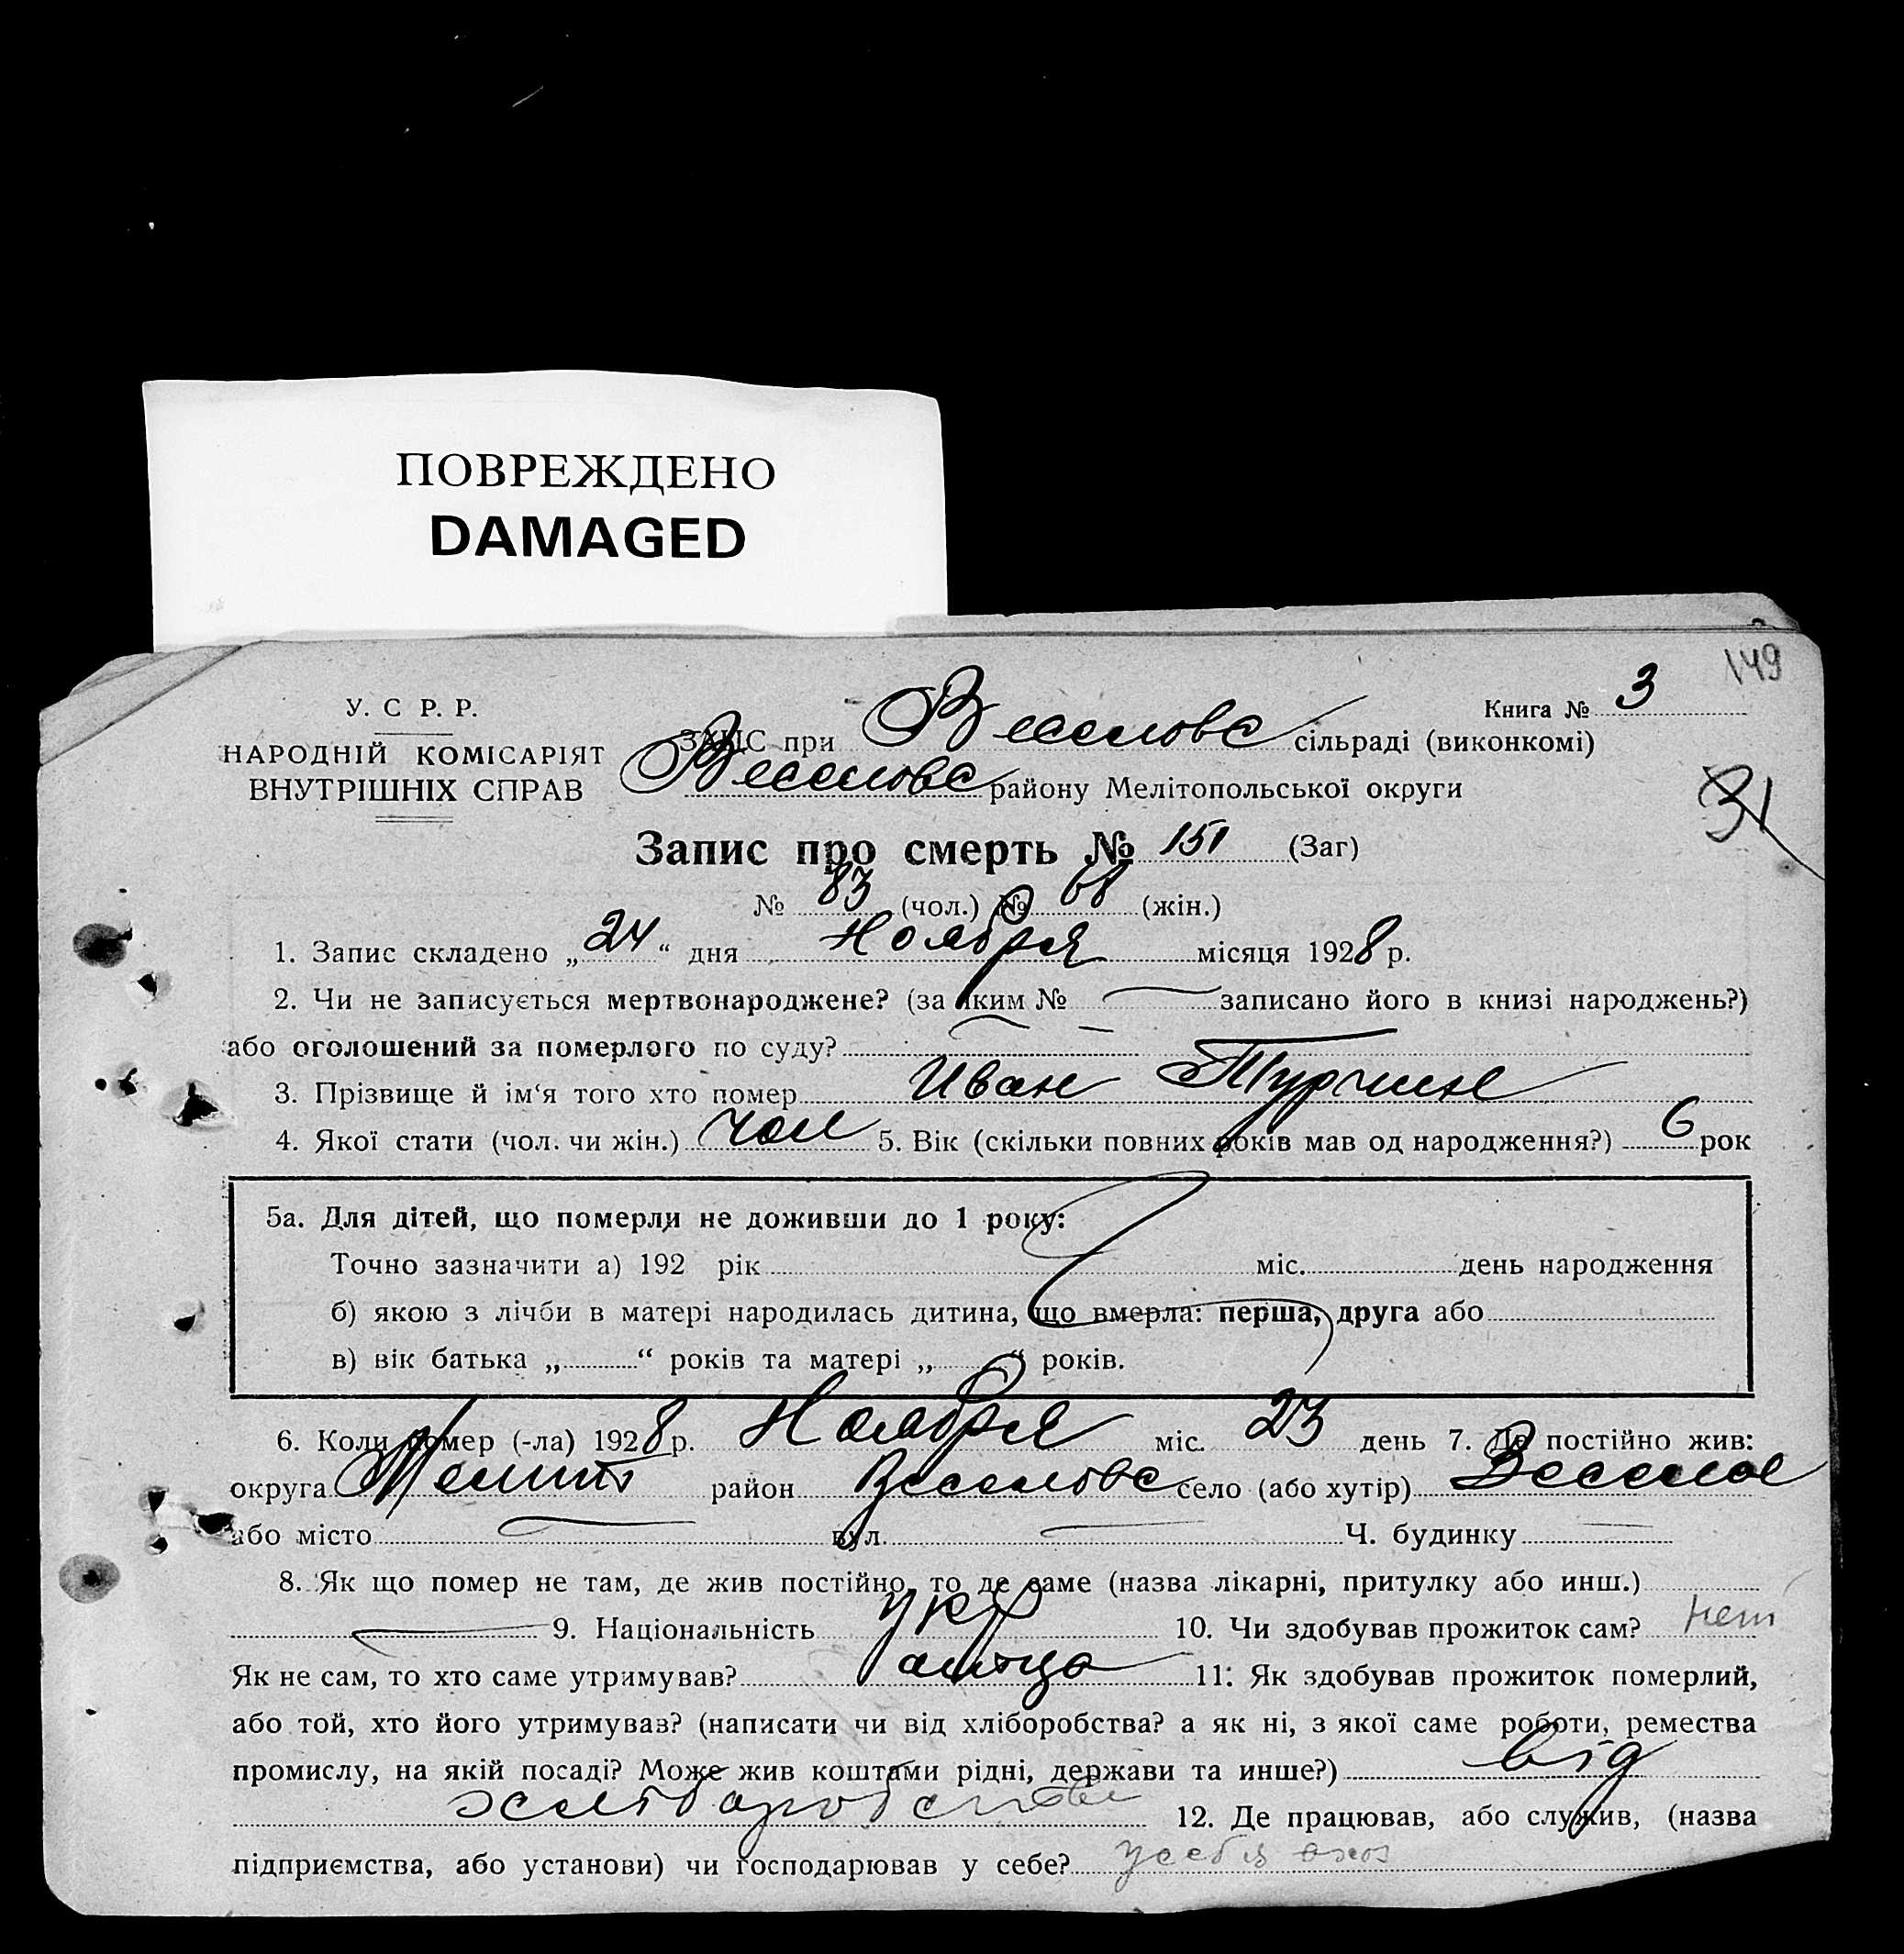 ПОВРЕЖДЕНО
DAMAGED
149
Книга № 3
У. С Р. Р.
НАРОДНІЙ КОМІСАРІЯТ
ВНУТРІШНІХ СПРАВ
ЗАПІС при Веселовс сільраді (виконкомі)
Веселовс району Мелітопольської округи
31
Запис про смерть № 151 (Заг)
№ 83 (чол.) № 68 (жін.)
1. Запис складено „ 24 “ дня Ноября місяця 1928 р.
2. Чи не записується мертвонароджене? (за яким № записано його в книзі народжень?)
або оголошений за померлого по суду?
3. Прізвище й ім‘я того хто помер Иван Турчин
4. Якої стати (чол. чи жін.) чол 5. Вік (скільки повних років мав од народження?) 6 рок
5а. Для дітей, що померли не доживши до 1 року:
Точно зазначити а) 192 рік міс. день народження
б) якою з лічби в матері народилась дитина, що вмерла: перша, друга або
в) вік батька „ “ років та матері „ “ років.
6. Коли помер (-ла) 1928 р. Ноября міс. 23 день 7. Де постійно жив:
округа Мелит район Веселовс село (або хутір) Веселое
або місто вул. Ч. будинку
8. Як що помер не там, де жив постійно, то де саме (назва лікарні, притулку або инш.)
9. Національність укр 10. Чи здобував прожиток сам? нет
Як не сам, то хто саме утримував? 11. Як здобував прожиток померлий,
або той, хто його утримував? (написати чи від хліборобства? а як ні, з якої саме роботи, ремества
промислу, на якій посаді? Може жив коштами рідні, держави та инше?) від
хліборобства 12. Де працював, або служив, (назва
підприємства, або установи) чи господарював у себе? у себя